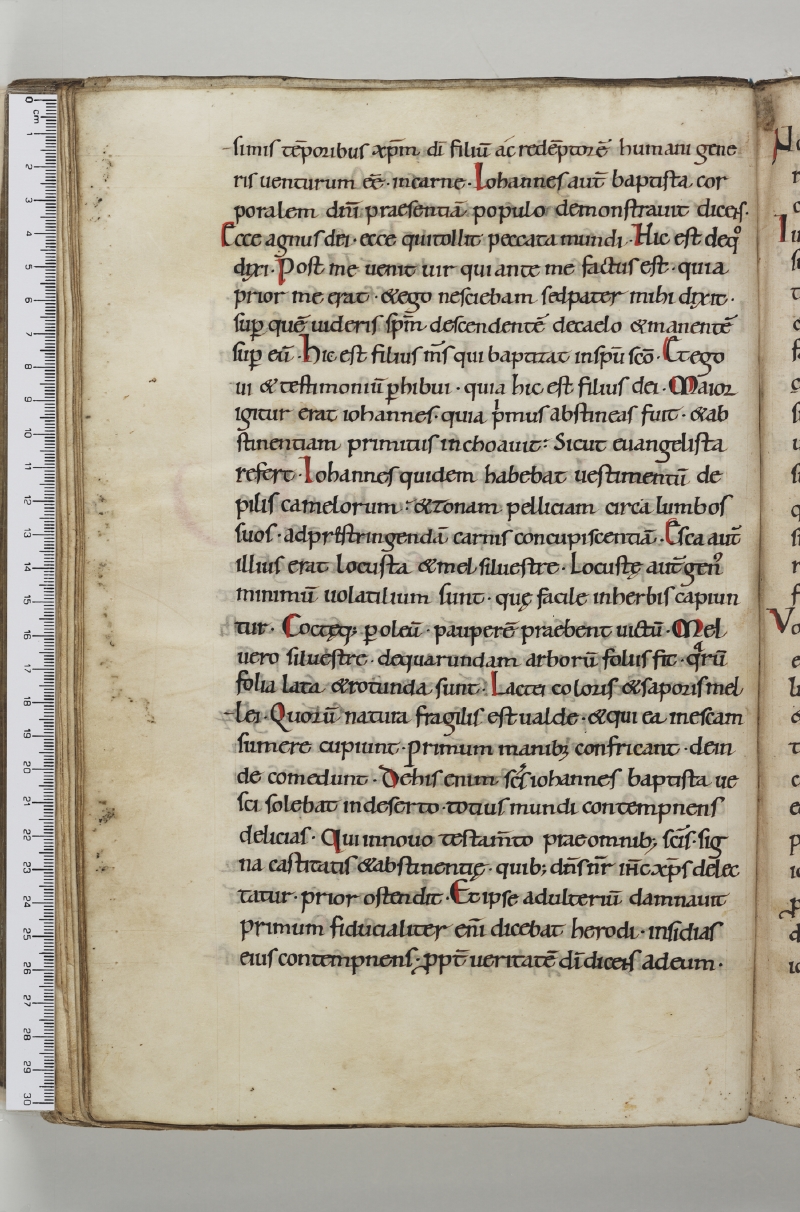 simis tēporibus xp̄m dī filiū ac redēptorē humani gene
ris uenturum ēē· incarne· Iohannes aut̄ baptista cor
poralem dn̄i praesentiā populo demonstrauit dicens·
Ecce agnus dei· ecce quitollit peccata mundi· Hic est deqͦ
dixi· Post me uenit uir qui ante me factus est· quia
prior me erat· &ego nesciebam sedpater mihi dixit·
sup̄ quē uideris sp̄m descendentē decaelo &manentē
sup̄ eū· hic est filius m̄s qui baptizat insp̄u sc̄o· Et ego
ui &testimoniū ꝑhibui· quia hic est filius dei· Maior
igitur erat iohannes· quia pͥmus abstineas fuit· &ab
stinentiam primitus inchoauit: Sicut euangelista
refert· Iohannes quidem habebat uestimentū de
pilis camelorum: &zonam pelliciam circa lumbos
suos· adpristringendā carnis concupiscentiā· Esca aut̄
illius erat locusta &mel siluestre· Locustę aut̄ gen᷒
minimū uolatilium sunt· quę facile inherbis capiun
tur· Coctęq; ꝑ oleū· pauperē praebent uictū· Mel
uero siluestre· dequarundam arborū foliis fit· qͣrū
folia lata &rotunda sunt· Lactei coloris &saporis mel
lei· Quorū natura fragilis est ualde· &qui ea inescam
sumere cupiunt· primum manib; confricant· dein
de comedunt· Dehis enim sc̄s iohannes baptista ue
sci solebat indeserto· totius mundi contempnens
delicias· Qui innouo testam̄to prae omnib; sc̄is· sig
na castitatis &abstinentię· quib; dn̄s n̄r ih̄c xp̄s delec
tatur· prior ostendit· Et ipse adulteriū damnauit
primum fiducialiter en̄i dicebat herodi· insidias
eius contempnens· ꝓpt̄ ueritatē dī dicens adeum·